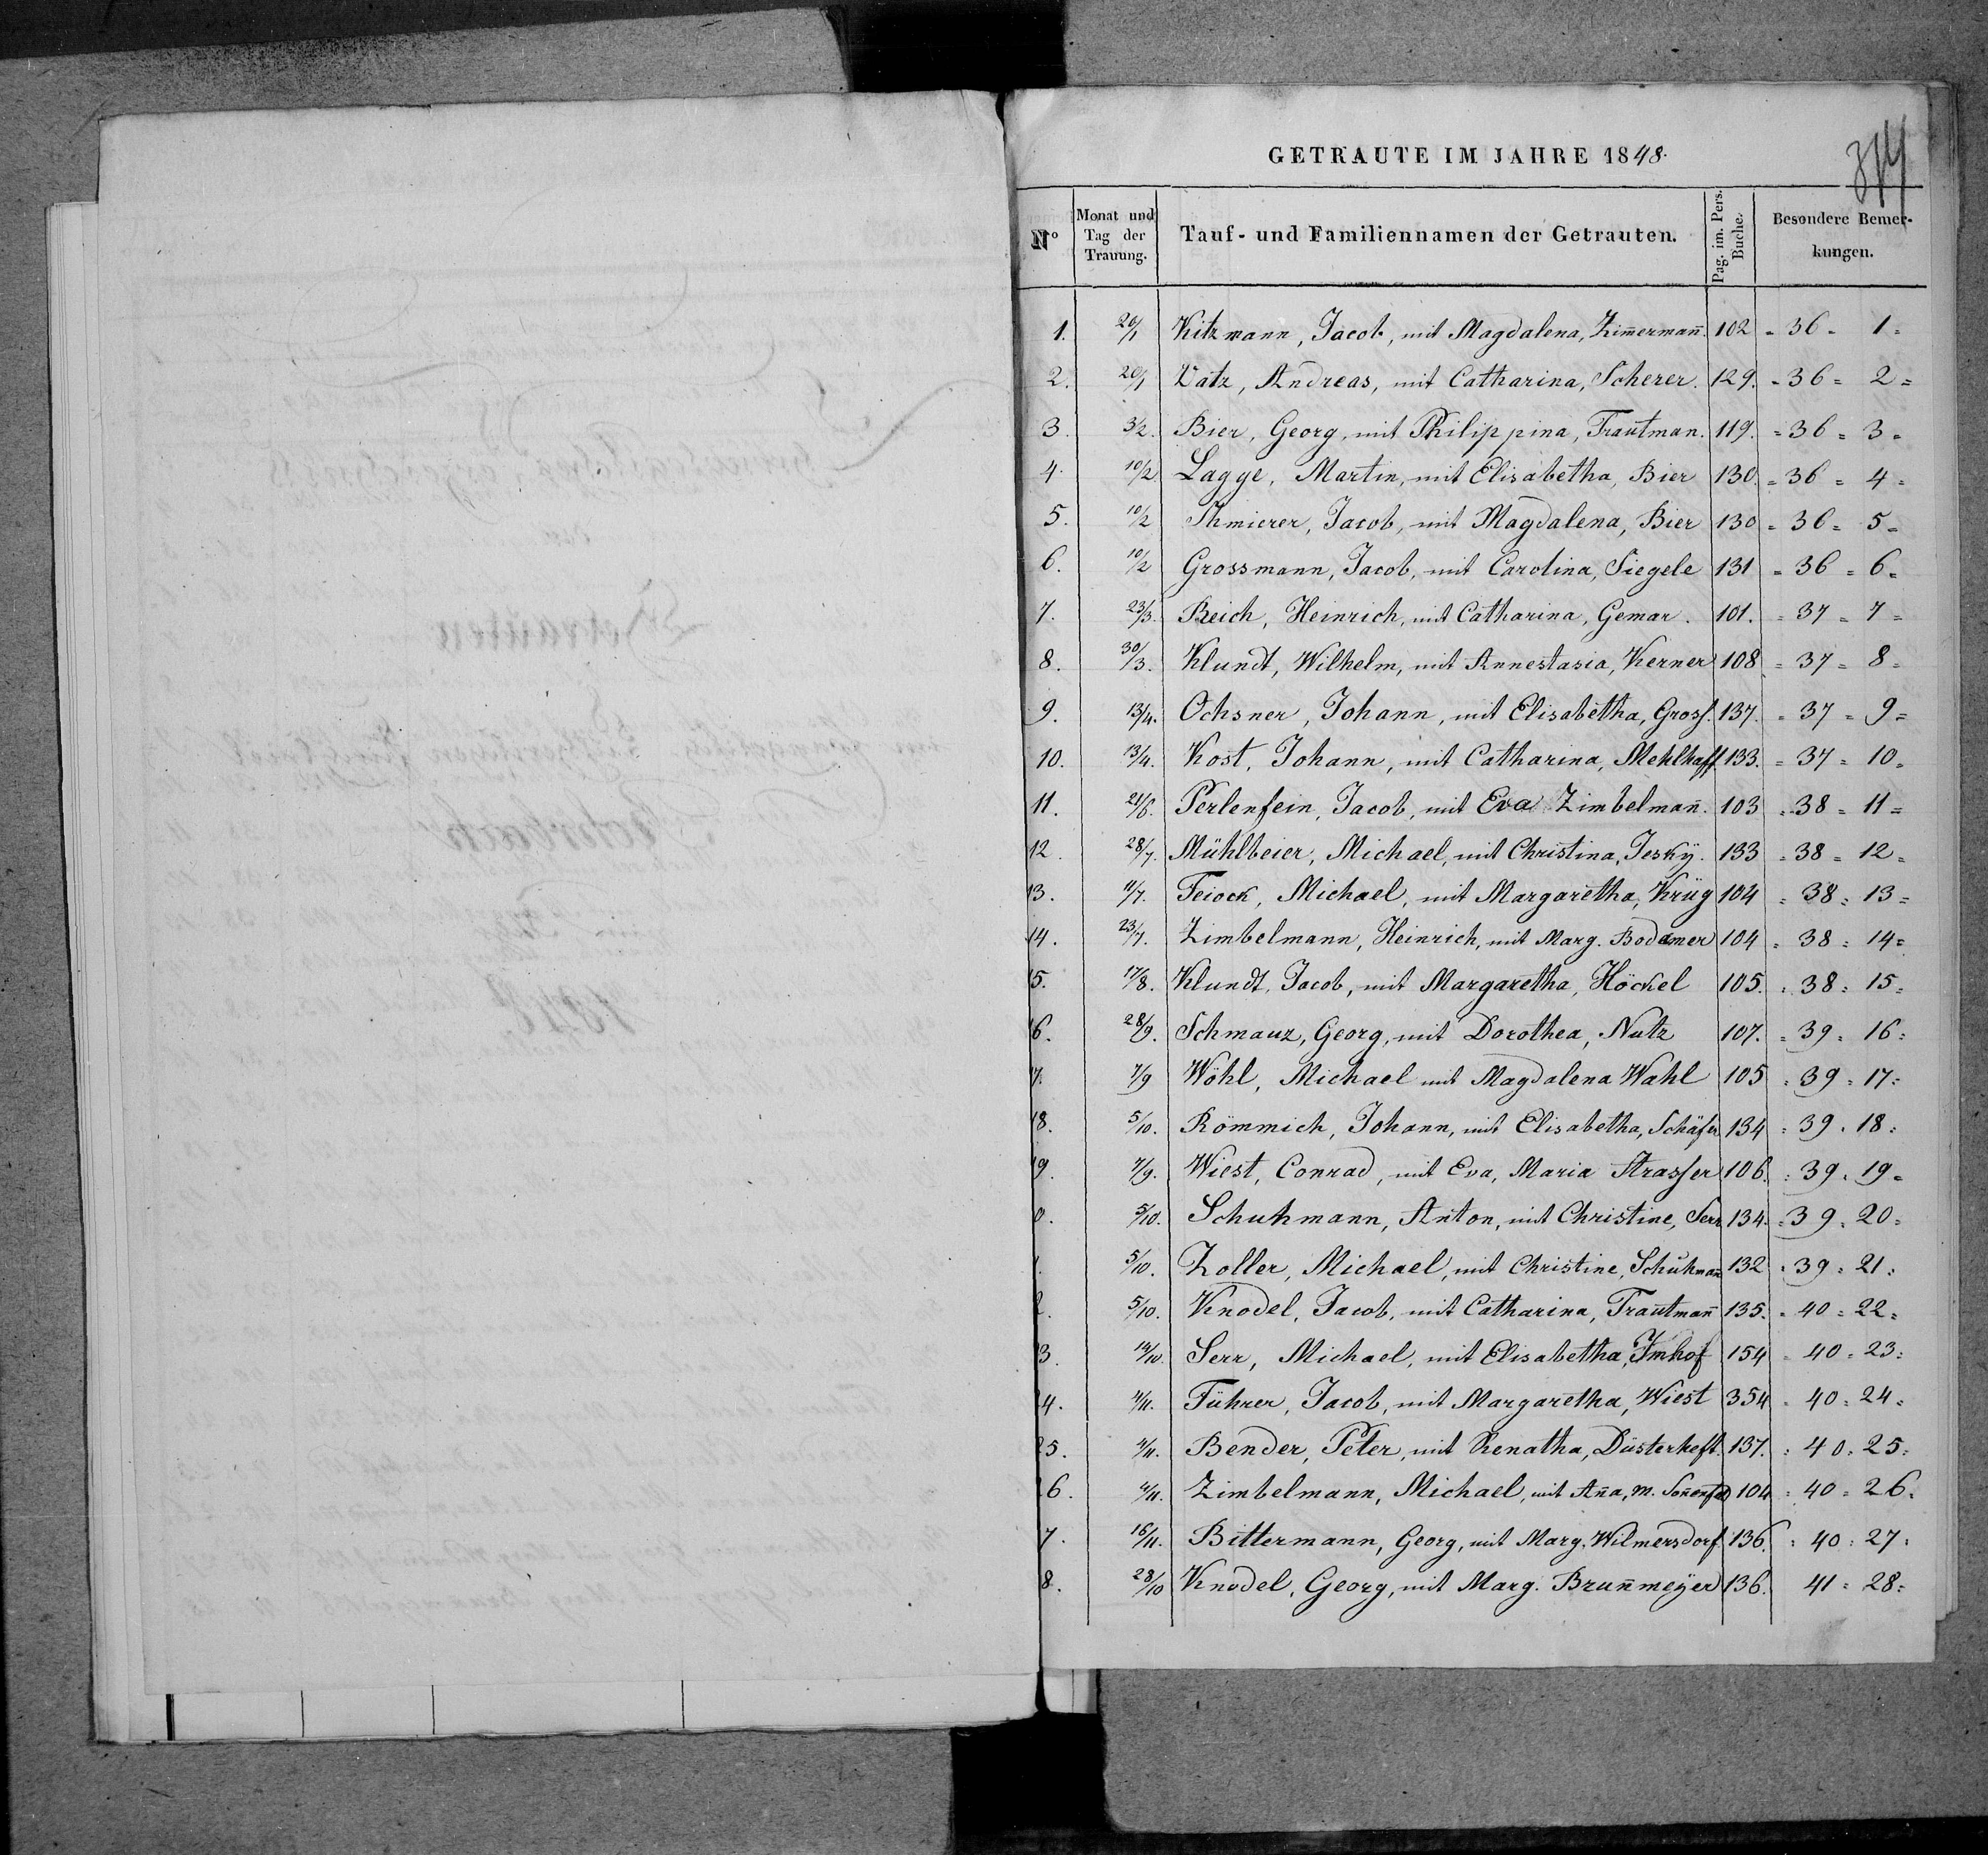 GETRAUTE IM JAHRE 1848.
N° Monat und Tag der Trauung. Tauf- und Familiennamen der Getrauten. Pag. im. Pers. Buche. Besondere Bemerkungen.
1. 20/1 Kitzmann, Jacob, mit Magdalena, Zim̄erman̄. 102 = 36 = 1 =
2. 20/1 Vatz, Andreas, mit Catharina, Scherer. 129. = 36 = 2 =
3. 3/2. Bier, Georg, mit Philippina, Trautman. 119. = 36 = 3 =
4. 10/2 Lagge, Martin, mit Elisabetha, Bier 130. = 36 = 4 =
5. 10/2 Thmierer, Jacob, mit Magdalena, Bier 130 = 36 = 5 =
6. 10/2 Grossmann, Jacob, mit Carolina, Siegele 131 = 36 = 6 =
7. 23/3. Reich, Heinrich, mit Catharina, Gemar. 101. = 37 = 7 =
8. 30/3. Klundt, Wilhelm, mit Annestasia, Kerner 108 = 37 = 8 =
9. 13/4. Ochsner, Johann, mit Elisabetha, Gross. 137. = 37 = 9 =
10. 13/4. Kost, Johann, mit Catharina, Mehlhaff 133. = 37 = 10 =
11. 21/6. Perlenfein, Jacob, mit Eva Zimbelman̄. 103 = 38 = 11 =
12. 28/7. Mühlbeier, Michael, mit Christina, Jeskÿ. 133 = 38 = 12 =
13. 11/7. Feiock, Michael, mit Margaretha, Krüg 104 = 38 = 13 =
14. 23/7. Zimbelmann, Heinrich, mit Marg. Bodamer 104 = 38 = 14 =
15. 17/8. Klundt, Jacob, mit Margaretha, Höckel 105. = 38 = 15 =
6. 28/9. Schmauz, Georg, mit Dorothea, Nutz 107. = 39 = 16 =
7. 7/9 Wöhl, Michael mit Magdalena Wahl 105 = 39 = 17 =
18. 5/10. Römmich, Johann, mit Elisabetha, Schäfer 134 = 39 = 18 =
19. 7/9. Wiest, Conrad, mit Eva, Maria Strasser 106. = 39 = 19 =
0. 5/10. Schuhmann, Anton, mit Christine, Serr 134. = 39 = 20 =
5/10. Zoller, Michael, mit Christine, Schuhman̄ 132 = 39 = 21 =
2. 5/10. Knodel, Jacob, mit Catharina, Trautman̄ 135. = 40 = 22 =
3. Serr, Michael, mit Elisabetha, Imhof 154 = 40 = 23 =
4. Führer, Jacob, mit Margaretha, Wiest 354 = 40 = 24 =
25. Bender, Peter, mit Renatha, Düsterheft. 137. = 40 = 25 =
26. Zimbelmann, Michael, mit An̄a, M. 104 = 40 = 26.
7. 16/11. Bittermann, Georg, mit Marg. Wilmersdorf 136. = 40 = 27 =
8. 28/10 Knodel, Georg, mit Marg. Brun̄meÿer 136. 41 = 28 =